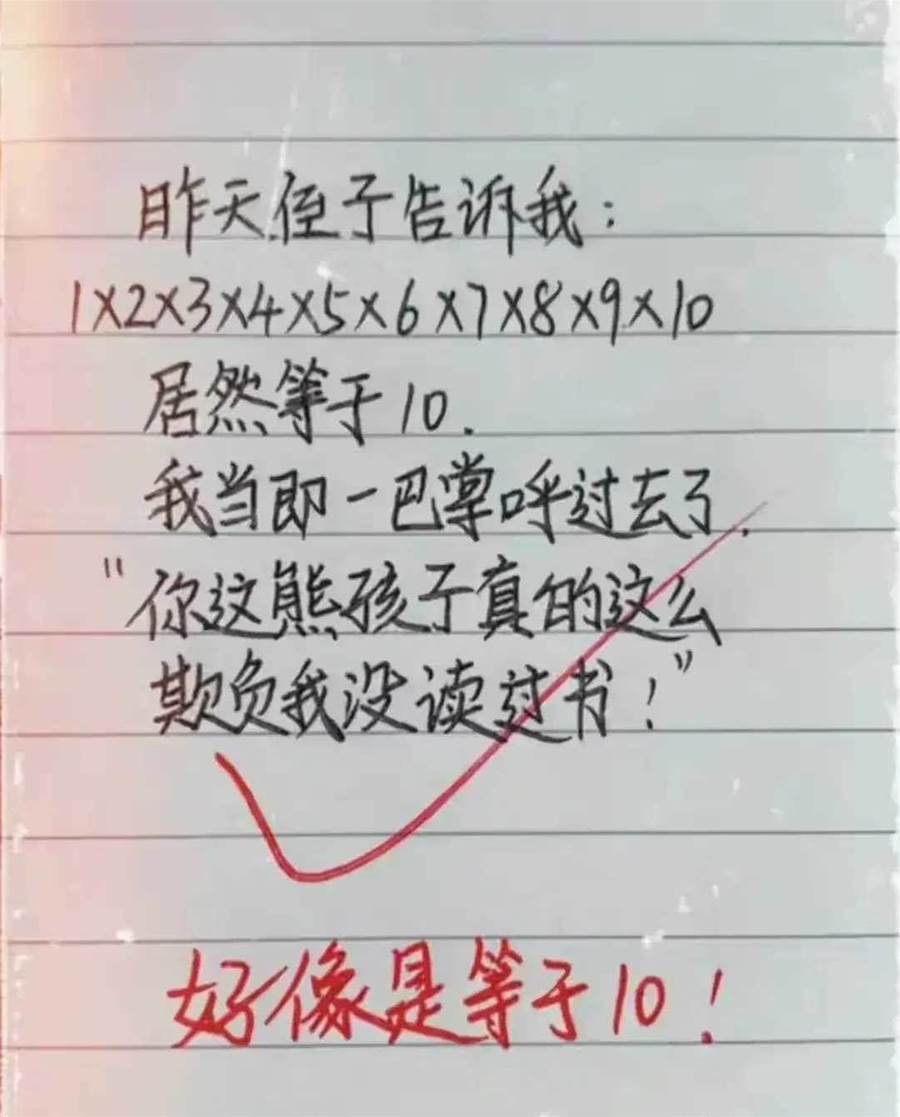 昨天侄子告诉我:
1×2×3×4×5×6×7×8×9×10
居然等于10.
我当即一巴掌呼过去了.
"你这熊孩子真的这么
欺负我没读过书!"
好像是等于10!